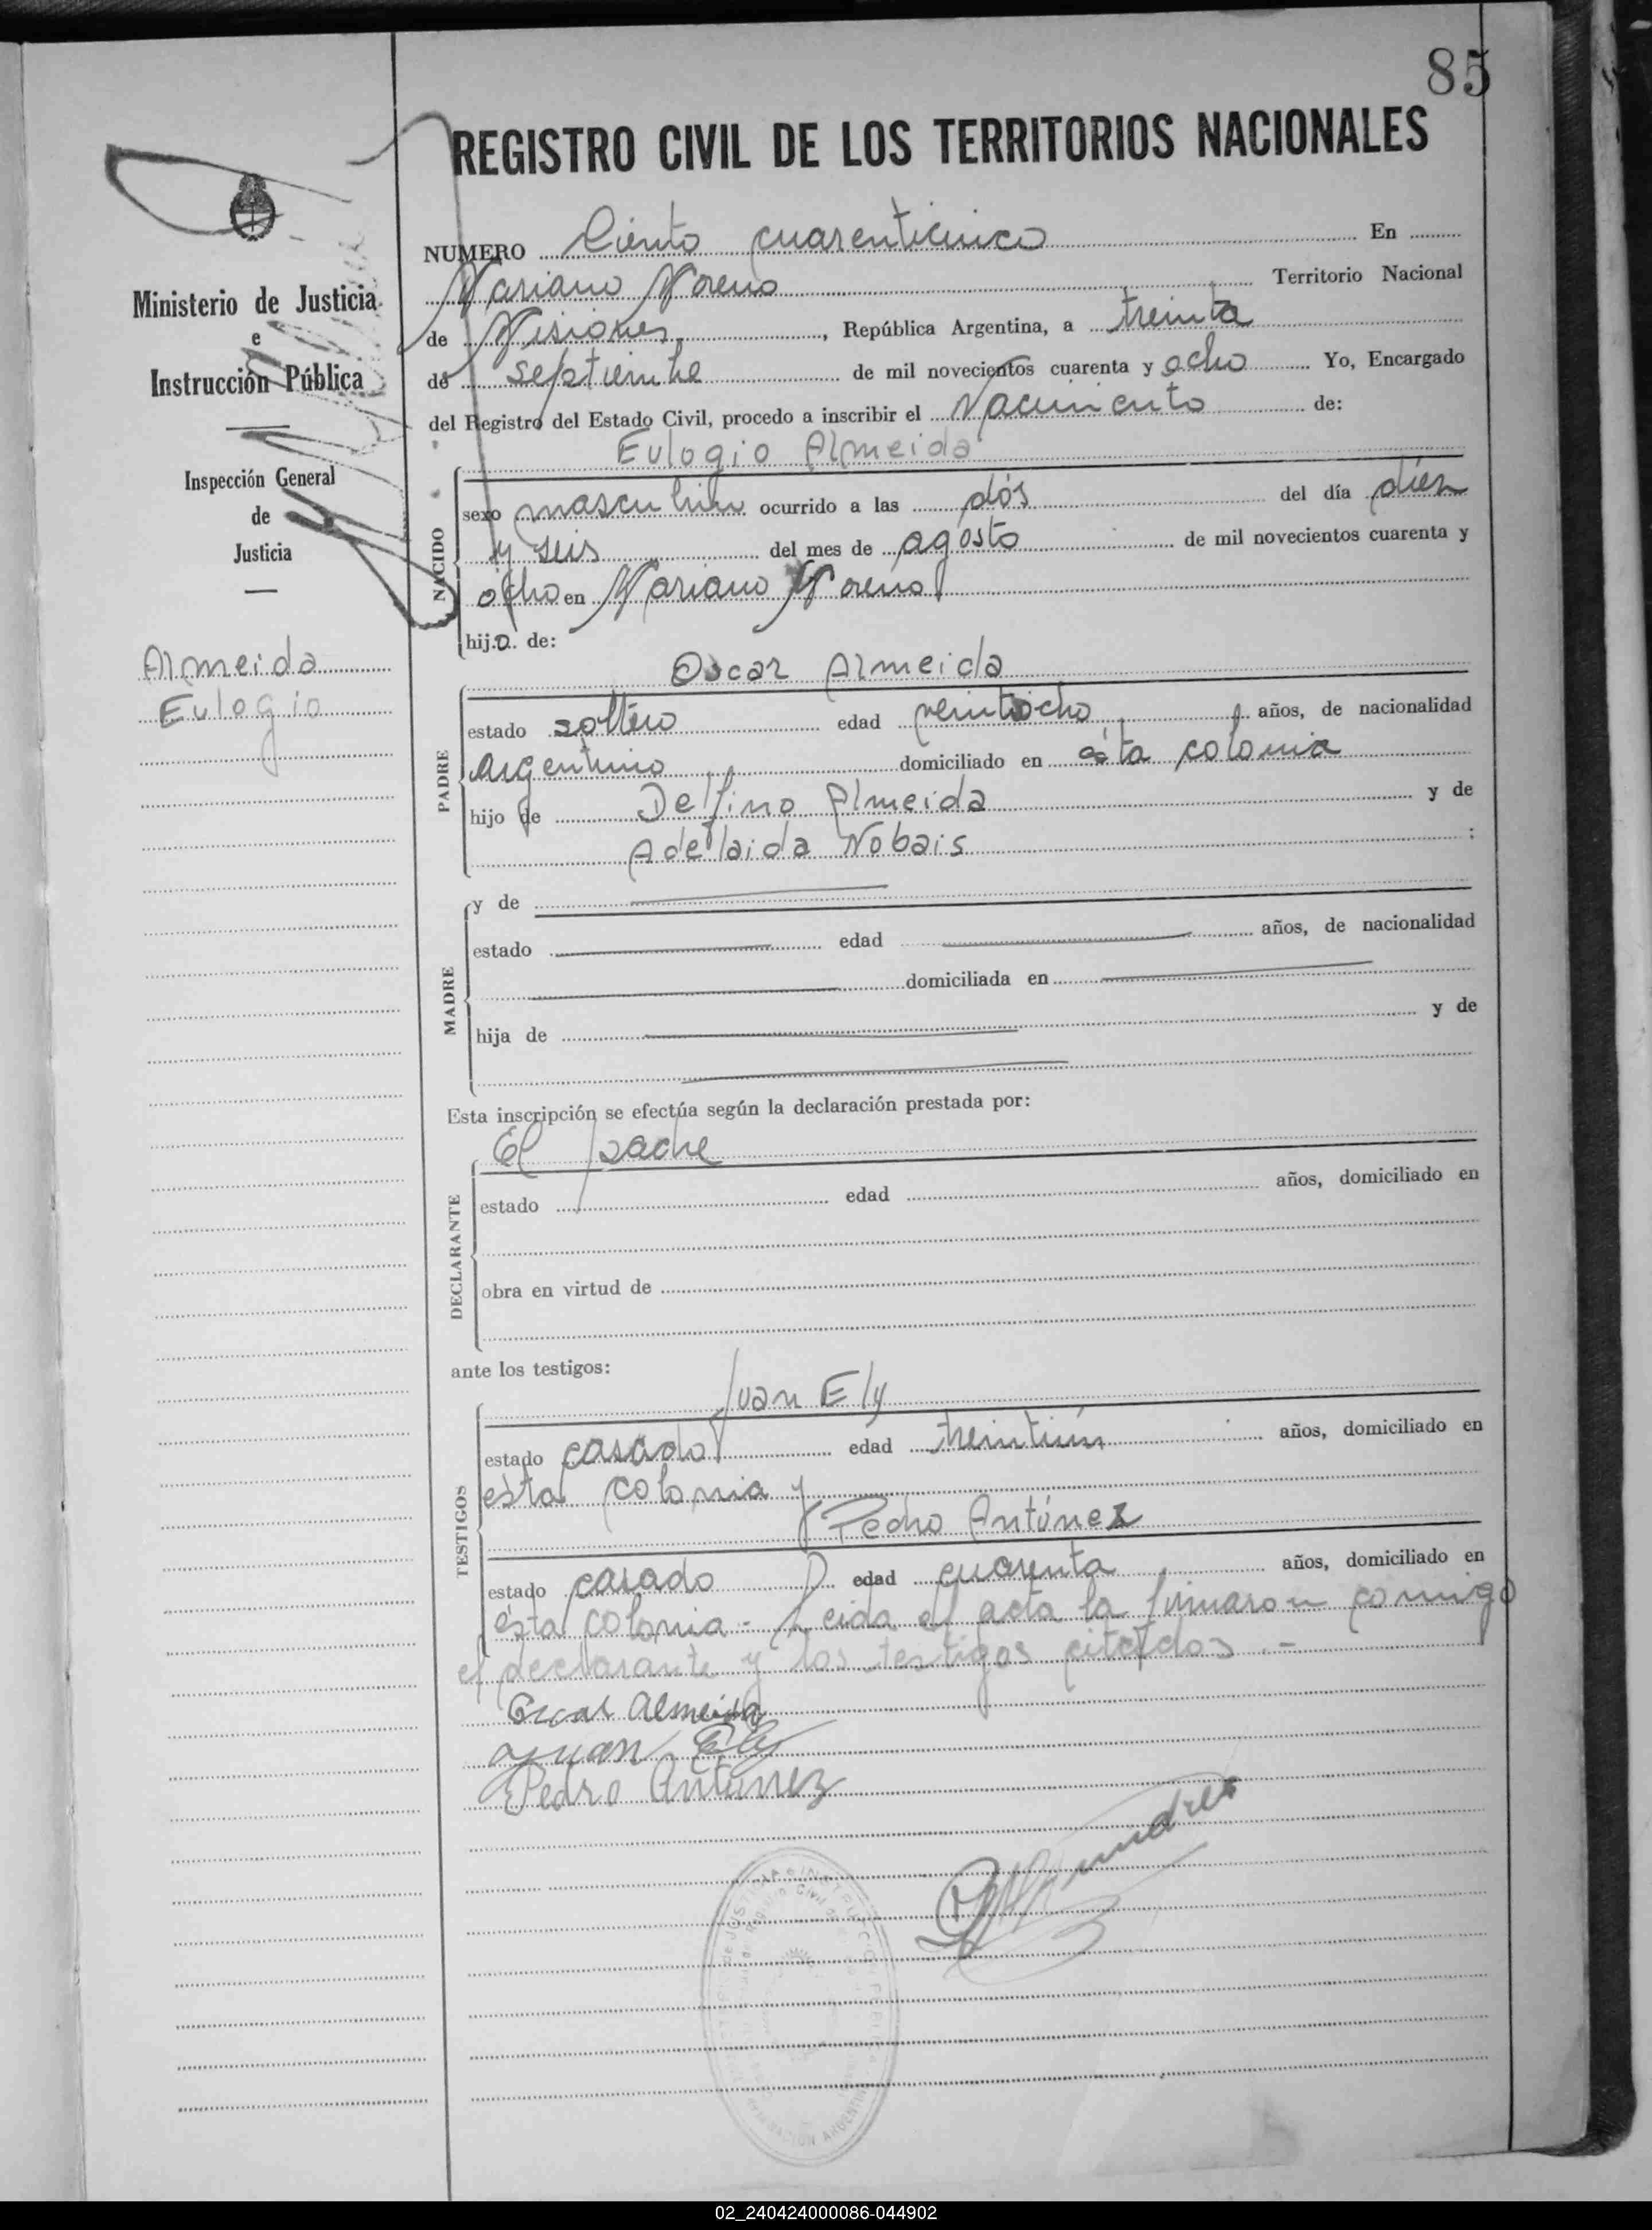 85
REGISTRO CIVIL DE LOS TERRITORIOS NACIONALES
NUMERO Ciento cuarenticinco En
Mariano Moreno Territorio Nacional
de Misiones, República Argentina, a treinta
de septiembre de mil novecientos cuarenta y ocho Yo, Encargado
del Registro del Estado Civil, procedo a inscribir el Nacimiento de:
Eulogio Almeida
NACIDO
sexo masculino ocurrido a las dós del día diez
y seis del mes de agosto de mil novecientos cuarenta y
ocho en Mariano Moreno
hijo de:
Oscar Almeida
PADRE
estado soltero edad veintiocho años, de nacionalidad
argentino domiciliado en ésta colonia
hijo de Delfino Almeida y de
Adelaida Nobais :
MADRE
y de
estado edad años, de nacionalidad
domiciliada en
hija de y de
Esta inscripción se efectúa según la declaración prestada por:
El padre
DECLARANTE
estado edad años, domiciliado en
obra en virtud de
ante los testigos:
Juan Ely
TESTIGOS
estado casado edad treintiún años, domiciliado en
ésta colonia y
Pedro Antúnez
estado casado edad cuarenta años, domiciliado en
ésta colonia - Leida el acta la firmaron comigo
el declarante y los testigos citados . -
Oscar Almeida
Juan Ely
Pedro Antunez
Ministerio de Justicia
e
Instrucción Pública
Inspección General
de
Justicia
Almeida
Eulogio
02_240424000086-044902